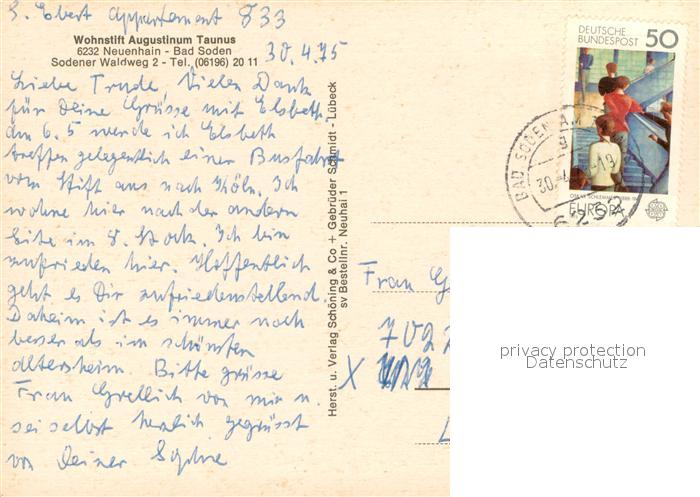 S. Ebert Appartement 833
Wohnstift Augustinum Taunus
6232 Neuenhain - Bad Soden
Sodener Waldweg 2 - Tel. (06196) 20 11
30.4.75
Liebe Trude, Vielen Dank
für Deine Grüsse mit Elsbeth.
Am 6.5 werde ich Elsbeth
treffen gelegentlich einer Busfahrt
vom Stift aus nach Köln. Ich
wohne hier nach der andern
Seite im 8. Stock. Ich bin
zufrieden hier. Hoffentlich
geht es Dir zufriedenstellend.
Daheim ist es immer noch
besser als im schönsten
Altersheim. Bitte grüsse
Frau Grellich von mir u.
sei selbst herzlich gegrüsst
von Deiner Sophie
Herst. u. Verlag Schöning & Co + Gebrüder Schmidt - Lübeck
sv Bestellnr. Neuhai 1
DEUTSCHE
BUNDESPOST 50
EUROPA
BAD SODEN A
30.
6232
Frau G
702
X
privacy protection
Datenschutz